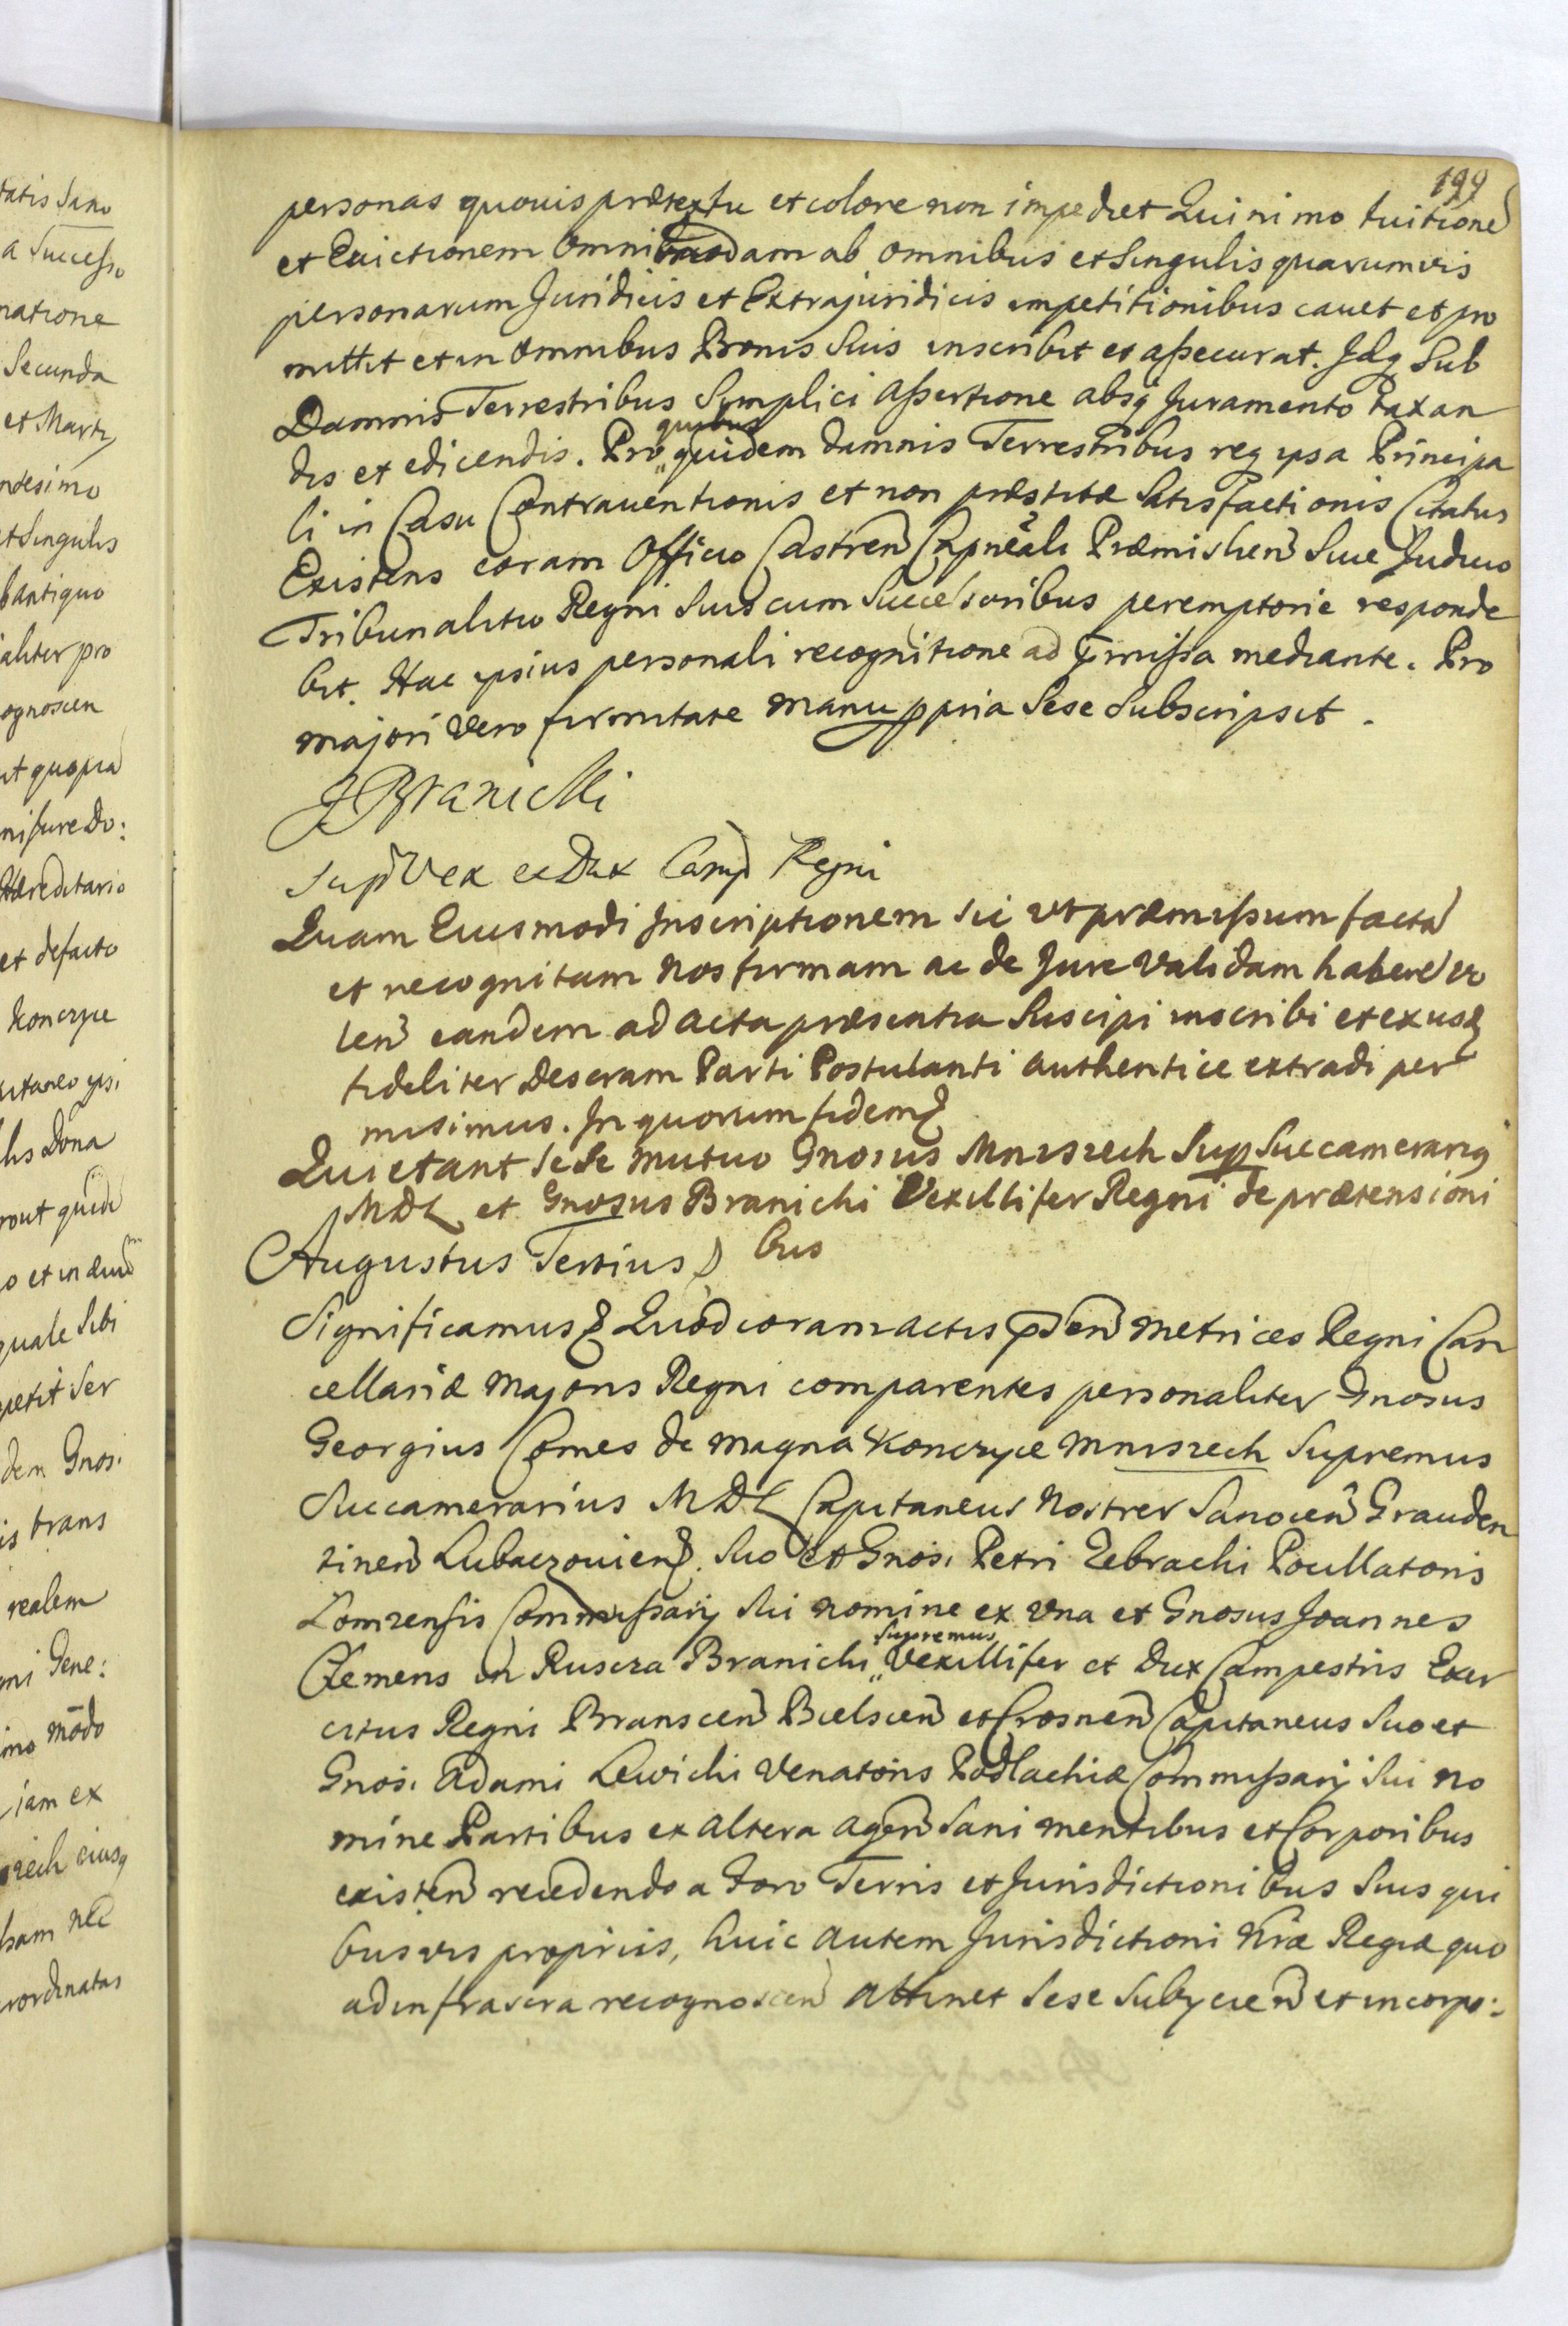 199
personas quouis prætextu et colore non impediet Quinimo tuitione
et Euictionem Omnimodam ab omnibus et Singulis quarumvis
personarum Juridicis et Extrajuridicis impetitionibus cauet et pro
mittit et in Omnibus Bonis Suis inscribit et assecurat. Idq Sub
Damnis Terrestribus Simplici assertione absq Juramento taxan
dis et edicendis. Pro quibus quidem damnis Terrestribus req ipsa Principa
li in Casu Contrauentionis et non præstitæ Satisfactionis Citatus
Existens coram Officio Castren Capneali Præmislien Siue Judicio
Tribunalitio Regni Suis cum Successoribus peremptorie responde
bit. Hac ipsius personali recognitione ad præmissa mediante. Pro
majori vero firmitate manu ppria Sese Subscripsit.
J Branicki
Sup Vex ec Dux Camp Regni
Quam Eiusmodi Inscriptionem Sic ut præmissum facta
et recognitam Nos firmam ac de Jure Validam habere vo
len eandem ad acta præsentia Suscipi inscribi et ex usq
fideliter Deseram Parti Postulanti authentice extradi per
misimus. In quorum fidem
Quietant Sese mutuo Gnosus Mniszech Sup Succamerariq
MDL et Gnosus Branichi Vexillifer Regni de prætensioni
bus
Augustus Tertius
Significamus Quod coram actis psen Metrices Regni Can
cellariæ Majoris Regni comparentes personaliter Gnosus
Georgius Comes de magna Konczyce Mniszech Supremus
Succamerarius MDL Capitaneus Noster Sanocen Grauden
tinen Lubaczouien. Suo et Gnosi Petri Zebrachi Pocillatoris
Lomzensis Commissarij Sui nomine ex Vna et Gnosus Joannes
Clemens in Ruszcza Branichi Supremus Vexillifer et Dux Campestris Exer
citus Regni Branscen Bielscen et Crosnen Capitaneus Suo et
Gnosi Adami Lewichi Venatoris Podlachiæ Commissarij Sui no
mine Partibus ex altera agen Sani mentibus et Corporibus
existen recedendo a Foro Terris et Jurisdictionibus Suis qui
busvis proprijs, huic autem Jurisdictioni Nræ Regiæ quo
ad infrascra recognoscen attinet Sese Subijcien et incorpo: